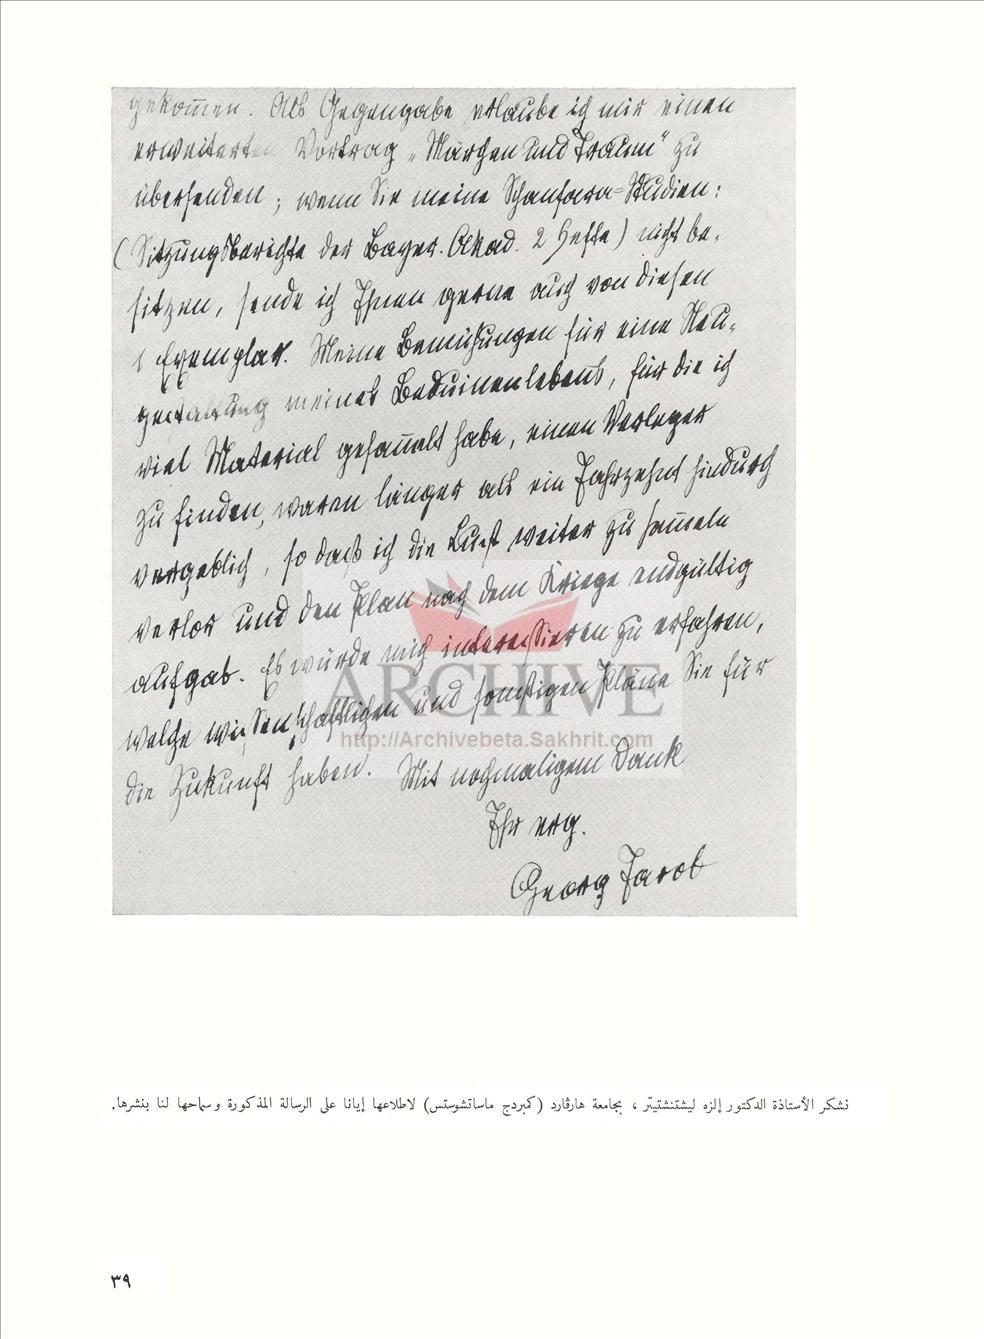 gekom̅en. Als Gegengabe erlaube ich mir einen
erweiterten Vortrag „Märchen und Traum" zu
übersenden; wenn Sie meine Schanfara-Studien:
(Sitzungsberichte der Bayer. Akad. 2 Hefte) nicht be-
sitzen, sende ich Ihnen gerne auch von diesen
1 Exemplar. Meine Bemühungen für eine Neu-
gestaltung meines Beduinenlebens, für die ich
viel Material gesam̅elt habe, einen Verleger
zu finden, waren länger als ein Jahrzehnt hindurch
vergeblich, so daß ich die Lust weiter zu sam̅eln
verlor und den Plan nach dem Kriege endgültig
aufgab. Es würde mich interessieren zu erfahren,
welche wissenschaftlichen und sonstigen Pläne Sie für
die Zukunft haben. Mit nochmaligem Dank
Ihr erg.
Georg Jacob
ARCHIVE
http://Archivebeta.Sakhrit.com
نشكر الأستاذة الدكتور إلزه ليشتنشتيتر ، بجامعة هارڤارد (كمبردج ماساتشوستس) لاطلاعها إيانا على الرسالة المذكورة وسماحها لنا بنشرها.
٣٩